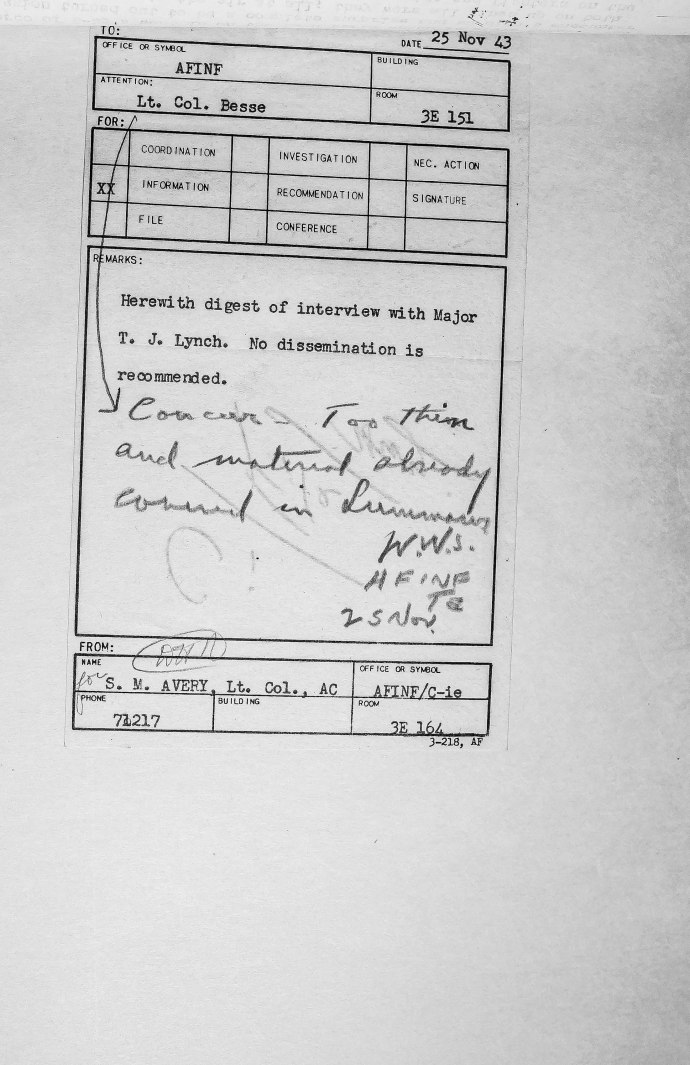 TO:
DATE 25 Nov 43
OFFICE OR SYMBOL
AFINF
BUILDING
ATTENTION:
Lt. Col. Besse
ROOM
3E 151
FOR:
COORDINATION
INVESTIGATION
NEC. ACTION
XX
INFORMATION
RECOMMENDATION
SIGNATURE
FILE
CONFERENCE
REMARKS:
Herewith digest of interview with Major
T. J. Lynch. No dissemination is
recommended.
Concur - Too thin
and material already
covered in
W.W.S.
AFINF
25 Nov.
FROM:
NAME
for S. M. AVERY, Lt. Col., AC
OFFICE OR SYMBOL
AFINF/C-ie
PHONE
71217
BUILDING
ROOM
3E 164
3-218, AF